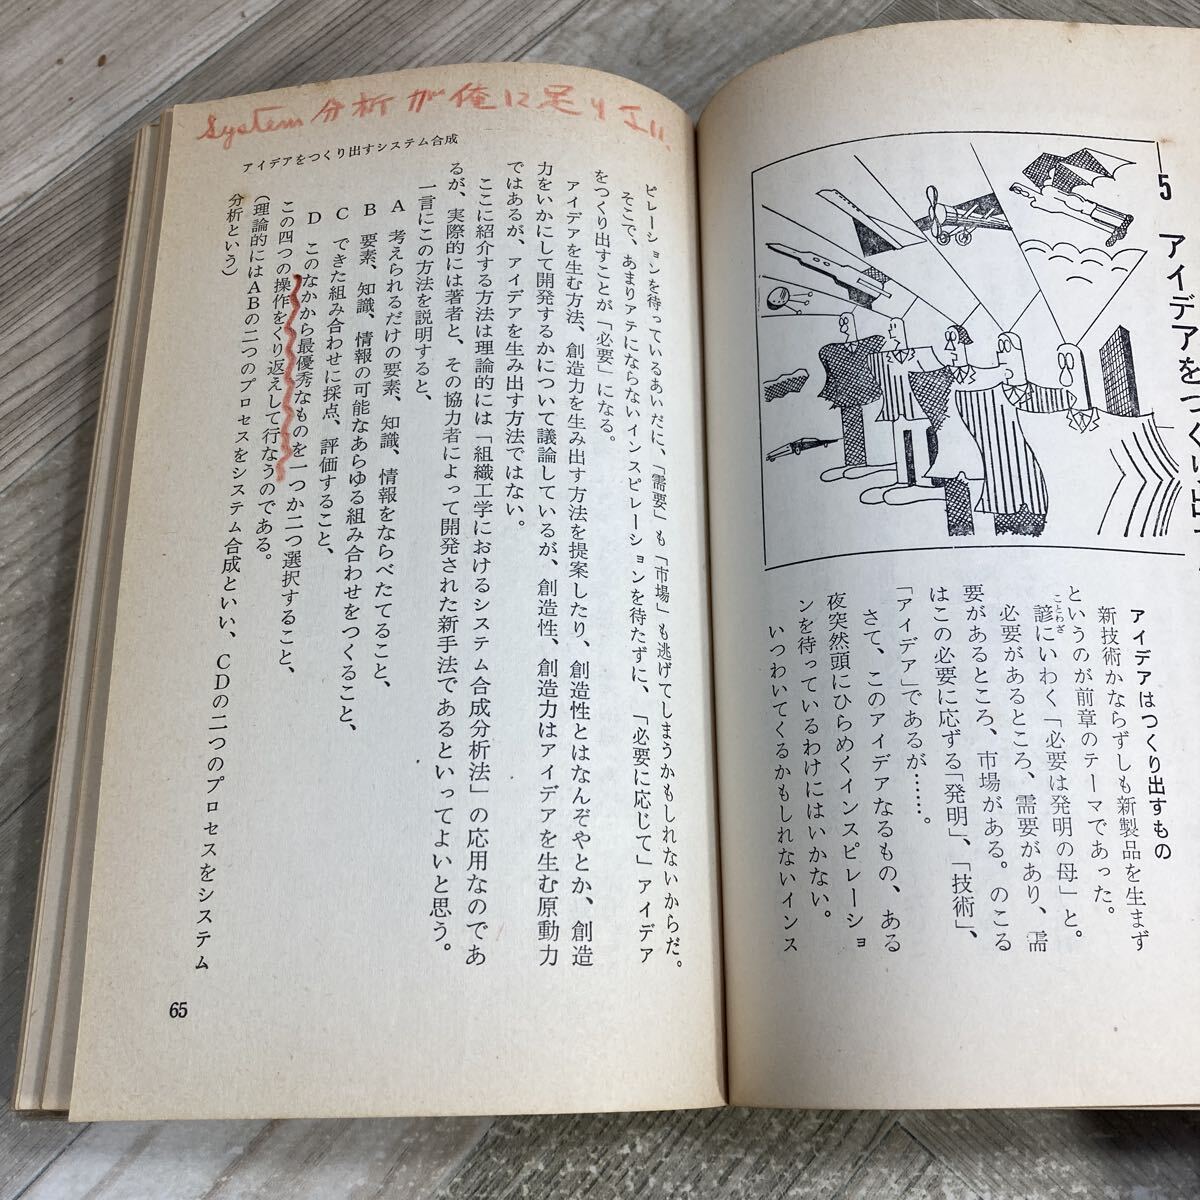 5 アイデアをつくり出す
アイデアはつくり出すもの
新技術かならずしも新製品を生まず
というのが前章のテーマであった。
諺にいわく「必要は発明の母」と。
ことわざ
必要があるところ、需要があり、需
要があるところ、市場がある。のこる
はこの必要に応ずる「発明」、「技術」、
「アイデア」であるが……。
さて、このアイデアなるもの、ある
夜突然頭にひらめくインスピレーショ
ンを待っているわけにはいかない。
いつわいてくるかもしれないインス
System 分析が俺に足りない。
アイデアをつくり出すシステム合成
ピレーションを待っているあいだに、「需要」も「市場」も逃げてしまうかもしれないからだ。
そこで、あまりアテにならないインスピレーションを待たずに、「必要に応じて」アイデア
をつくり出すことが「必要」になる。
アイデアを生む方法、創造力を生み出す方法を提案したり、創造性とはなんぞやとか、創造
力をいかにして開発するかについて議論しているが、創造性、創造力はアイデアを生む原動力
ではあるが、アイデアを生み出す方法ではない。
ここに紹介する方法は理論的には「組織工学におけるシステム合成分析法」の応用なのであ
るが、実際的には著者と、その協力者によって開発された新手法であるといってよいと思う。
一言にこの方法を説明すると、
A 考えられるだけの要素、知識、情報をならべたてること、
B 要素、知識、情報の可能なあらゆる組み合わせをつくること、
C できた組み合わせに採点、評価すること、
D このなかから最優秀なものを一つか二つ選択すること、
この四つの操作をくり返えして行なうのである。
(理論的にはABの二つのプロセスをシステム合成といい、CDの二つのプロセスをシステム
分析という)
65